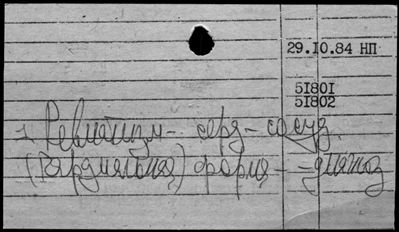 29.10.84 НП
51801
51802
1 Ревматизм - серд - сосуд.
(Кардиальная) форма - - диагноз